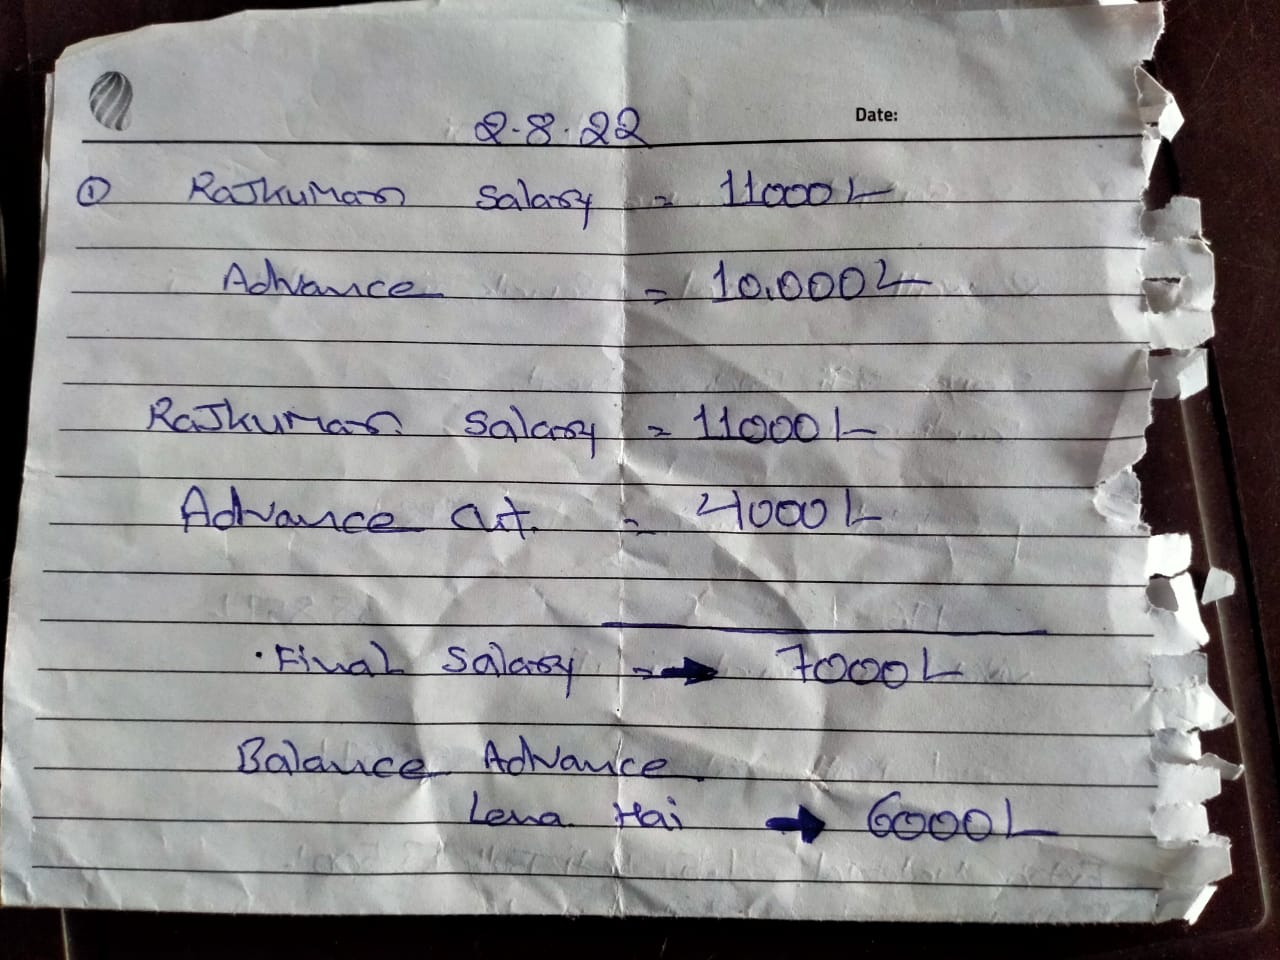 Date:
2.8.22
① Rajkumar Salary = 11000/-
Advance = 10,000/-
Rajkumar Salary = 11000/-
Advance Cut. = 4000/-
Final Salary = → 7000/-
Balance Advance
Lena Hai → 6000/-